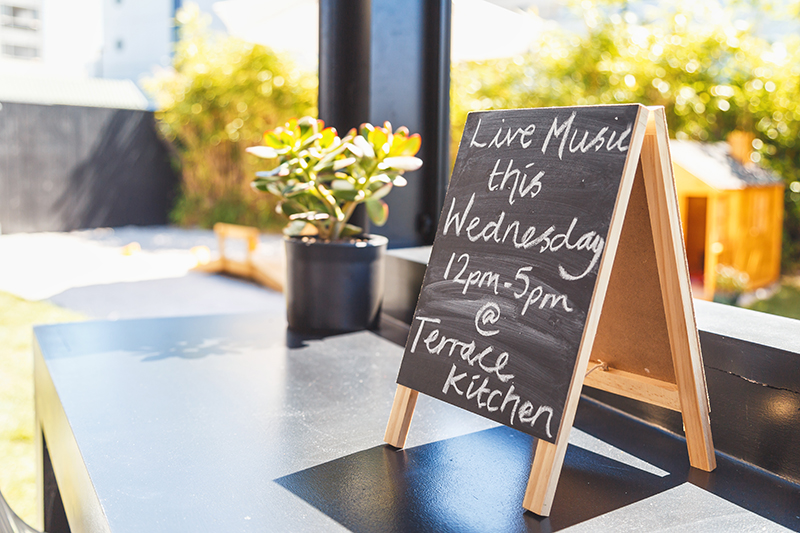 Live Music
this
Wednesday
12pm-5pm
@
Terrace
Kitchen